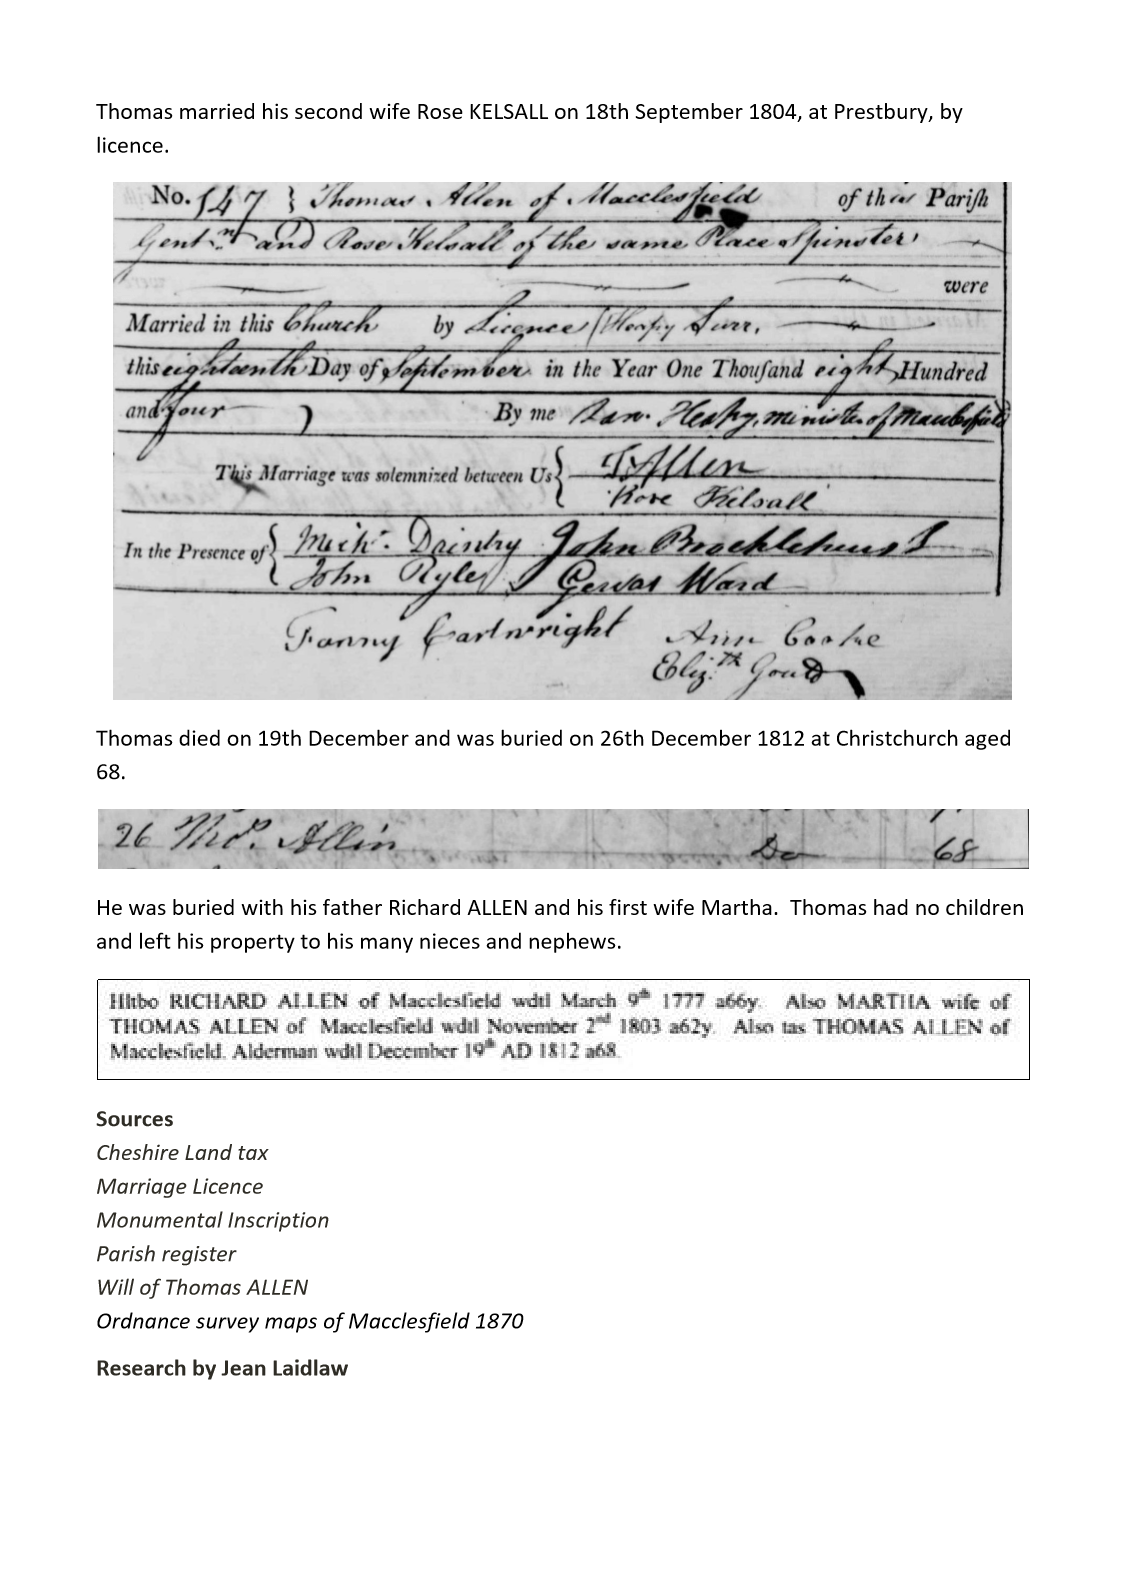 Thomas married his second wife Rose KELSALL on 18th September 1804, at Prestbury, by
licence.
No. 547 } Thomas Allen of Macclesfield of this Pariſh
Gentn and Rose Kelsall of the same Place Spinster
were
Married in this Church by Licence
this eighteenth Day of September in the Year One Thouſand eight Hundred
and four By me Heapy, minister of Macclesfield
This Marriage was solemnized between Us { T Allen
Rose Kelsall
In the Presence of { Michl. Daintry John Brocklehurst
John Ryle Gervas Ward
Fanny Cartwright Ann Cooke
Eliz.th Gould
Thomas died on 19th December and was buried on 26th December 1812 at Christchurch aged
68.
26 Thos. Allin Do 68
He was buried with his father Richard ALLEN and his first wife Martha. Thomas had no children
and left his property to his many nieces and nephews.
Hltbo RICHARD ALLEN of Macclesfield wdtl March 9th 1777 a66y. Also MARTHA wife of
THOMAS ALLEN of Macclesfield wdtl November 2nd 1803 a62y. Also tas THOMAS ALLEN of
Macclesfield. Alderman wdtl December 19th AD 1812 a68.
Sources
Cheshire Land tax
Marriage Licence
Monumental Inscription
Parish register
Will of Thomas ALLEN
Ordnance survey maps of Macclesfield 1870
Research by Jean Laidlaw